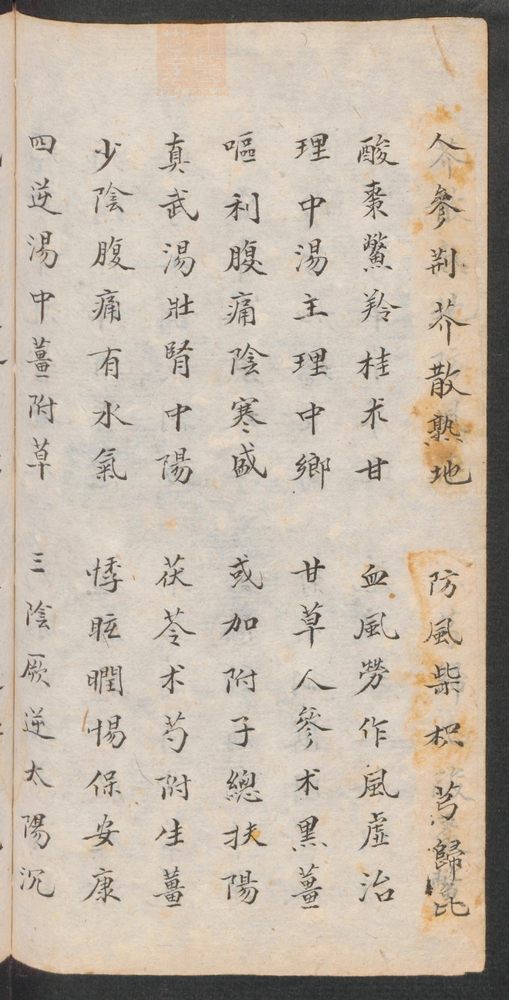 人參荆芥散熟地　防風柴枳芎歸比
酸棗鱉羚桂朮甘　血風勞作風虛治
理中湯主理中鄉　甘草人參术黑薑
嘔利腹痛陰寒盛　或加附子總扶陽
真武湯壯腎中陽　茯苓术芍附生薑
少陰腹痛有水氣　悸眩瞤惕保安康
四逆湯中薑附草　三陰厥逆太陽沉